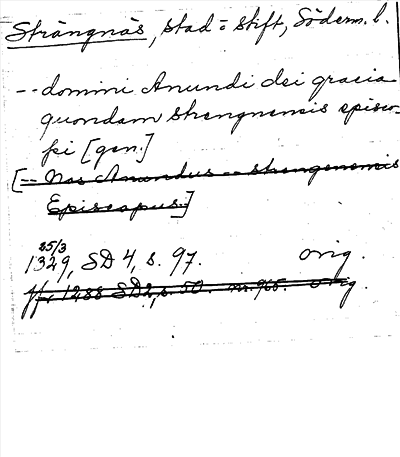 Strängnäs, stad o stift, Söderm. l.
-- domini Anundi dei gracia
quondam strengnensis episco-
pi [gen.]
[-- Nos Anundus -- strengenensis
Episcopus.]
25/3
1329, SD 4, s. 97. orig.
1288 SD2, s. 50. nr. 965. orig.